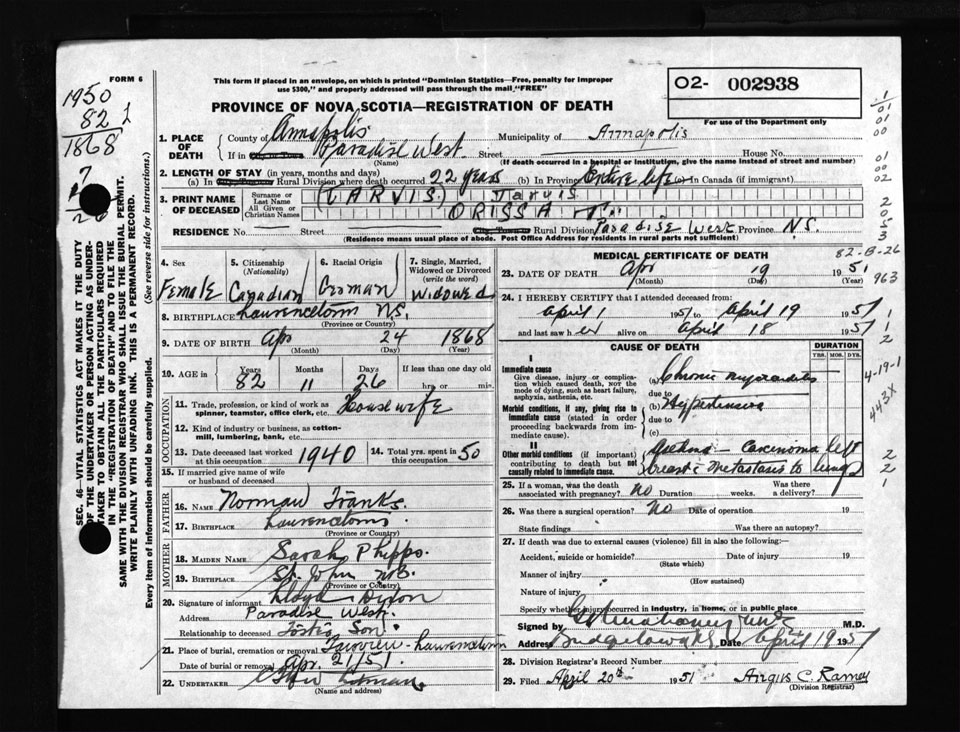 FORM 6
This form if placed in an envelope, on which is printed "Dominion Statistics—Free, penalty for improper
use $300," and properly addressed will pass through the mail "FREE"
O2- 002938
For use of the Department only
PROVINCE OF NOVA SCOTIA—REGISTRATION OF DEATH
1950
82
1868
SEC. 46—VITAL STATISTICS ACT MAKES IT THE DUTY
OF THE UNDERTAKER OR PERSON ACTING AS UNDER-
TAKER TO OBTAIN ALL THE PARTICULARS REQUIRED
IN THE "REGISTRATION OF DEATH" AND TO FILE THE
SAME WITH THE DIVISION REGISTRAR WHO SHALL ISSUE THE BURIAL PERMIT.
WRITE PLAINLY WITH UNFADING INK. THIS IS A PERMANENT RECORD.
Every item of information should be carefully supplied. (See reverse side for instructions.)
1. PLACE OF DEATH County of Annapolis Municipality of Annapolis
If in Paradise West Street House No.
(Name) (If death occurred in a hospital or institution, give the name instead of street and number)
2. LENGTH OF STAY (in years, months and days)
(a) In Rural Division where death occurred 22 years (b) In Province Entire life (c) In Canada (if immigrant)
3. PRINT NAME OF DECEASED Surname or Last Name (JARVIS) Jarvis
All Given or Christian Names ORISSA T.
RESIDENCE No. Street Rural Division Paradise West Province N.S.
(Residence means usual place of abode. Post Office Address for residents in rural parts not sufficient)
4. Sex Female
5. Citizenship (Nationality) Canadian
6. Racial Origin German
7. Single, Married, Widowed or Divorced (write the word) Widowed
8. BIRTHPLACE Lawrencetown N.S.
(Province or Country)
9. DATE OF BIRTH Apr 24 1868
(Month) (Day) (Year)
10. AGE in Years 82 Months 11 Days 26 If less than one day old
hrs. or min.
OCCUPATION
11. Trade, profession, or kind of work as spinner, teamster, office clerk, etc. Housewife
12. Kind of industry or business, as cotton-mill, lumbering, bank, etc.
13. Date deceased last worked at this occupation 1940 14. Total yrs. spent in this occupation 50
15. If married give name of wife or husband of deceased
FATHER
16. NAME Norman Franks
17. BIRTHPLACE Lawrencetown
(Province or Country)
MOTHER
18. MAIDEN NAME Sarah Phipps.
19. BIRTHPLACE St. John N.B.
(Province or Country)
20. Signature of informant Lloyd
Address Paradise West
Relationship to deceased Son
21. Place of burial, cremation or removal Fairview - Lawrencetown
Date of burial or removal Apr. 21/51.
22. UNDERTAKER
(Name and address)
MEDICAL CERTIFICATE OF DEATH
82-B-26
23. DATE OF DEATH Apr 19 1951
(Month) (Day) (Year)
963
24. I HEREBY CERTIFY that I attended deceased from:
April 1 1951 to April 19 1951
and last saw her alive on April 18 1951
CAUSE OF DEATH DURATION
YRS. MOS. DYS.
4-19-1
443X
I
Immediate cause
Give disease, injury or complication which caused death, not the mode of dying, such as heart failure, asphyxia, asthenia, etc.
(a) Chronic Myocarditis
due to
Morbid conditions, if any, giving rise to immediate cause (stated in order proceeding backwards from immediate cause).
(b) Hypertension
due to
(c)
II
Other morbid conditions (if important) contributing to death but not causally related to immediate cause.
Asthma - Carcinoma left
breast c metastasis to lungs
25. If a woman, was the death associated with pregnancy? No Duration weeks. Was there a delivery?
26. Was there a surgical operation? No Date of operation 19
State findings Was there an autopsy?
27. If death was due to external causes (violence) fill in also the following:—
Accident, suicide or homicide? Date of injury 19
(State which)
Manner of injury
(How sustained)
Nature of injury
Specify whether injury occurred in industry, in home, or in public place
Signed by M.D.
Address Bridgetown N.S. Date April 19 1951
28. Division Registrar's Record Number
29. Filed April 20th 1951 Angus C. Ramey
(Division Registrar)